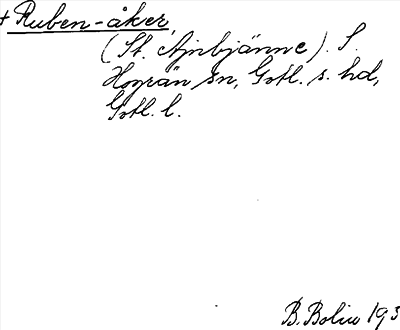 + Ruben-åker,
(St. Ajnbjänne). S.
Hogrän sn, Gotl. s. hd,
Gotl. l.
B. Bolin 193